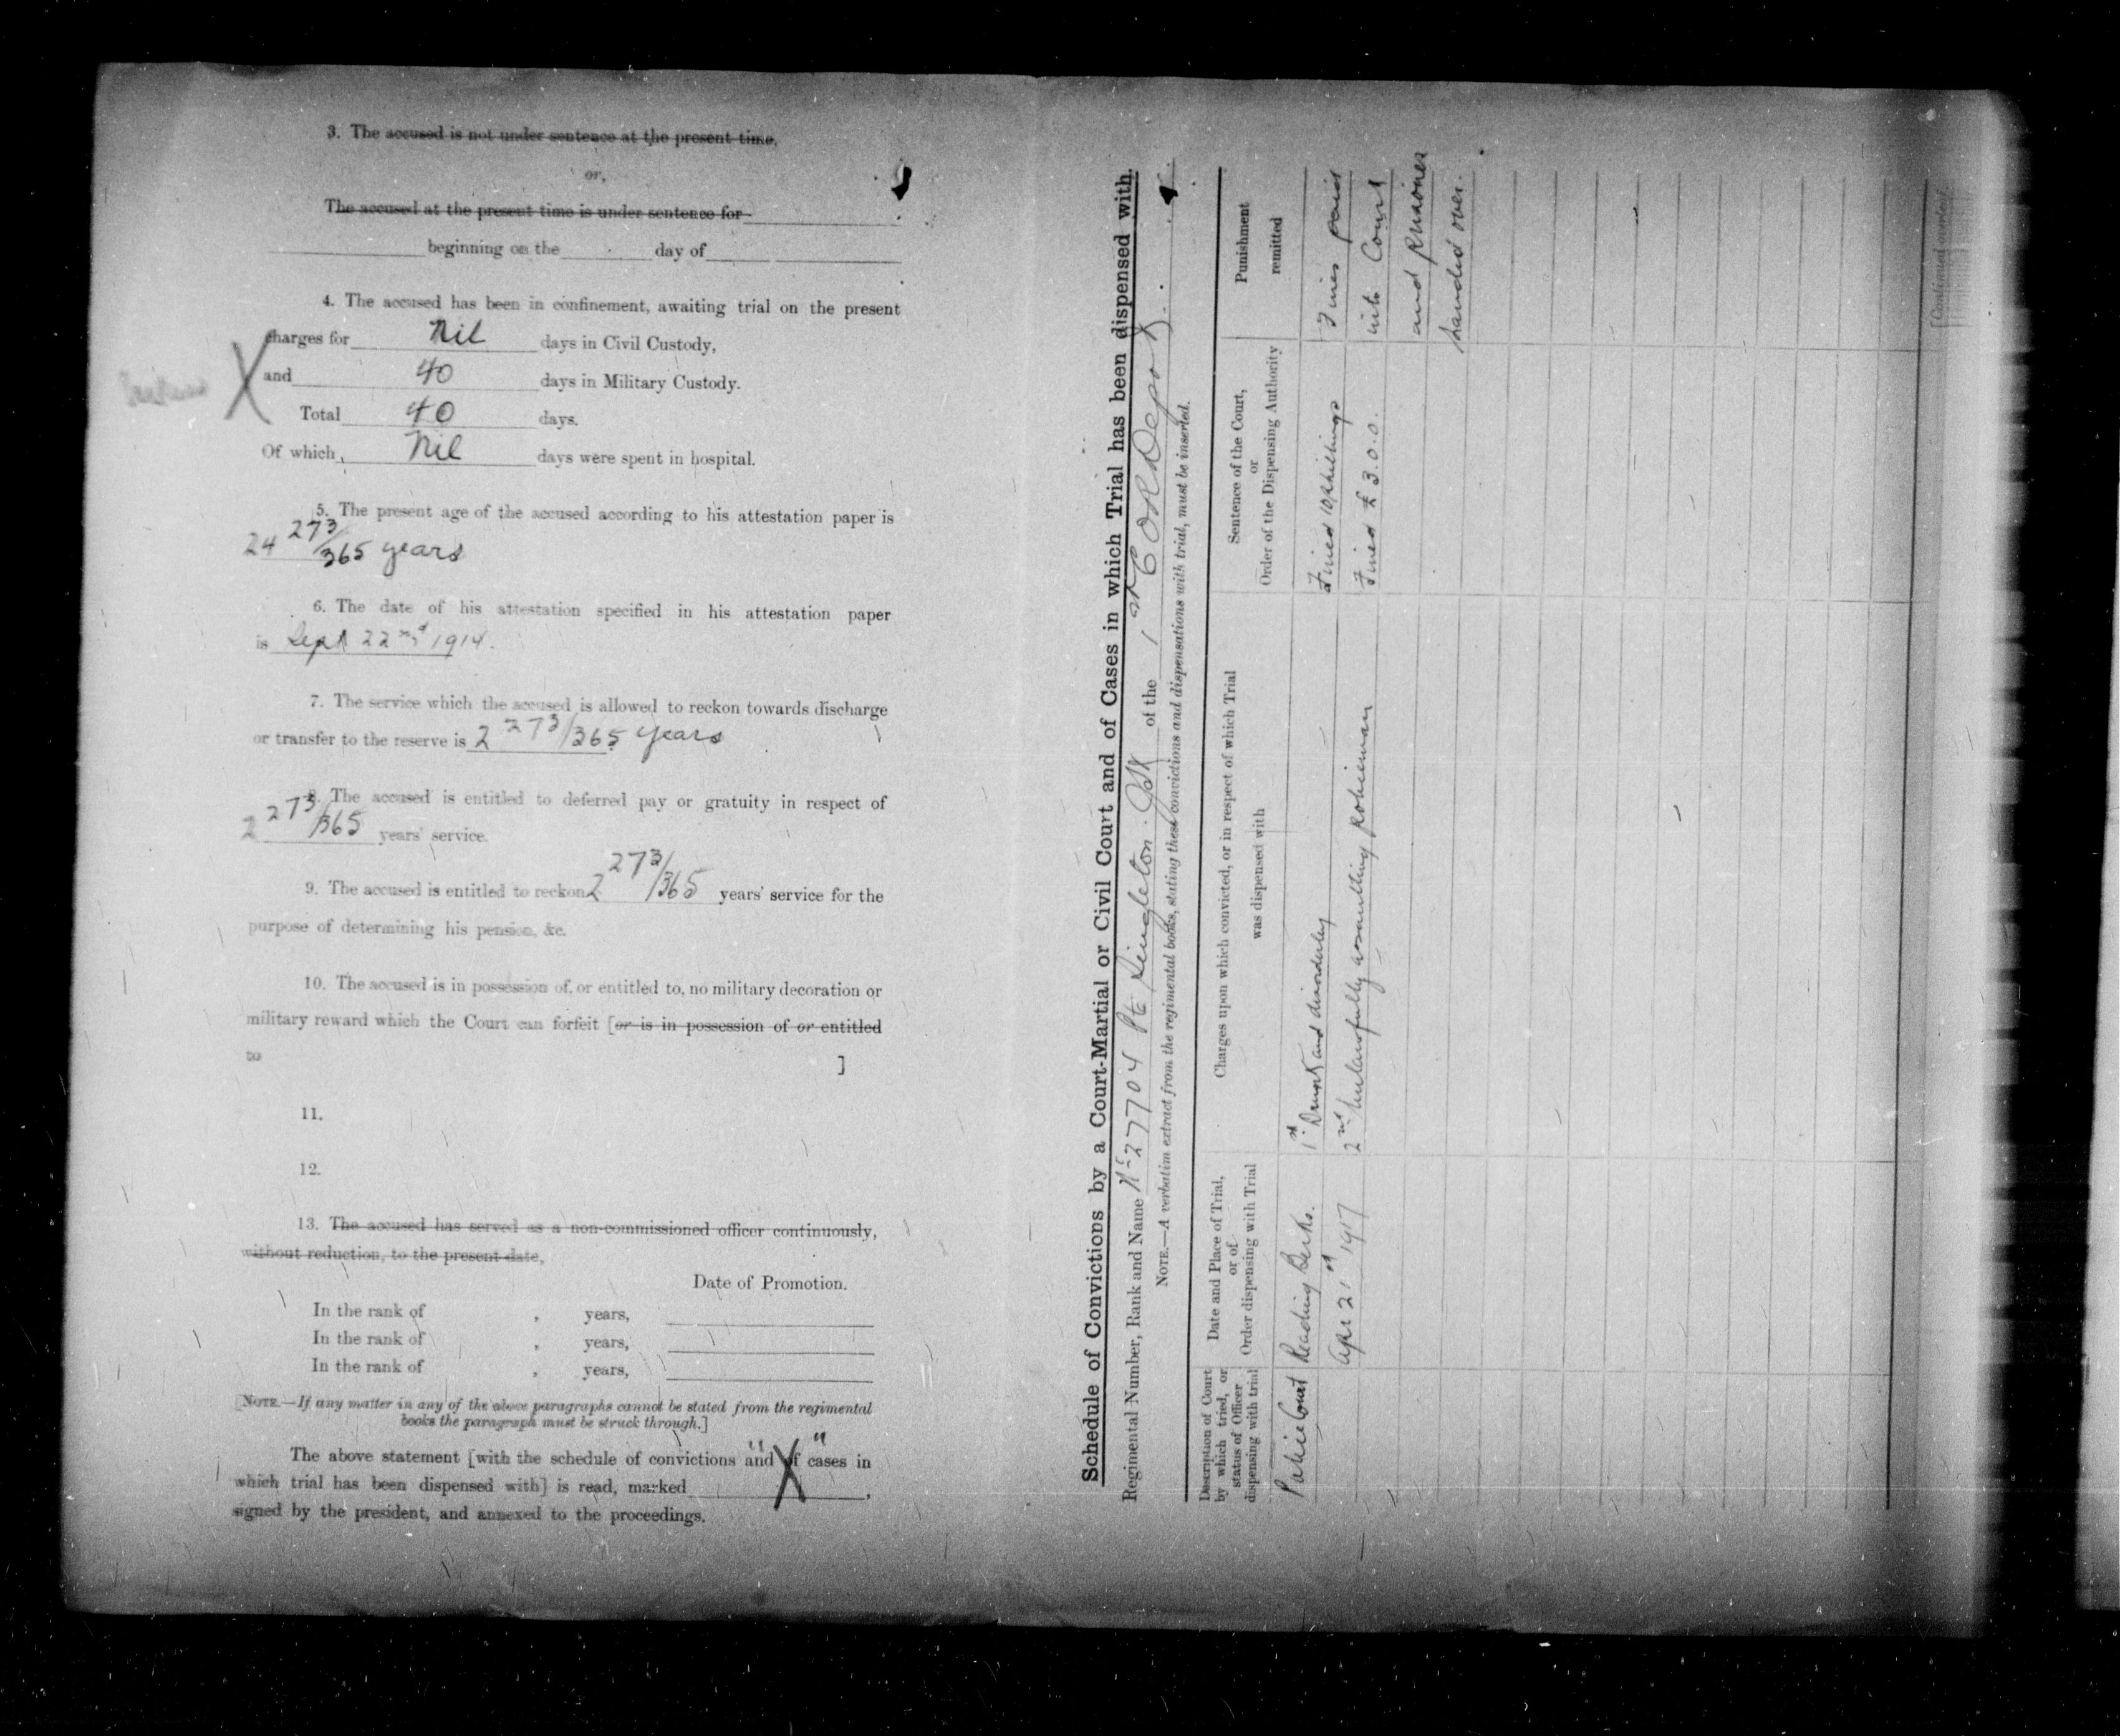 3. The accused is not under sentence at the present time,
or,
The accused at the present time is under sentence for
beginning on the day of
4. The accused has been in confinement, awaiting trial on the present
charges for Nil days in Civil Custody,
and 40 days in Military Custody.
Total 40 days.
Of which, Nil days were spent in hospital.
5. The present age of the accused according to his attestation paper is
24 273/365 years
6. The date of his attestation specified in his attestation paper
is Sept 22nd 1914.
7. The service which the accused is allowed to reckon towards discharge
or transfer to the reserve is 2 273/365 years
8. The accused is entitled to deferred pay or gratuity in respect of
2 273/365 years' service.
9. The accused is entitled to reckon 2 273/365 years' service for the
purpose of determining his pension, &c.
10. The accused is in possession of, or entitled to, no military decoration or
military reward which the Court can forfeit [or is in possession of or entitled
to ]
11.
12.
13. The accused has served as a non-commissioned officer continuously,
without reduction, to the present date,
Date of Promotion.
In the rank of , years,
In the rank of , years,
In the rank of , years,
[NOTE.—If any matter in any of the above paragraphs cannot be stated from the regimental
books the paragraph must be struck through.]
The above statement [with the schedule of convictions and of cases in
which trial has been dispensed with] is read, marked "X",
signed by the president, and annexed to the proceedings.
Schedule of Convictions by a Court-Martial or Civil Court and of Cases in which Trial has been dispensed with.
Regimental Number, Rank and Name No 27704 Pte Singleton. of the 1st C O R Depot
NOTE.—A verbatim extract from the regimental books, stating these convictions and dispensations with trial, must be inserted.
Description of Court
by which tried, or
status of Officer
dispensing with trial
Date and Place of Trial,
or of
Order dispensing with Trial
Charges upon which convicted, or in respect of which Trial
was dispensed with
Sentence of the Court,
or
Order of the Dispensing Authority
Punishment
remitted
Police Court Reading Berks. 1st Drunk and disorderly Fined 10 shillings Fines paid
Apr 21st 1917 2nd Unlawfully assaulting policeman Fined £3.0.0. into Court
and prisoner
handed over.
[Continued overleaf.